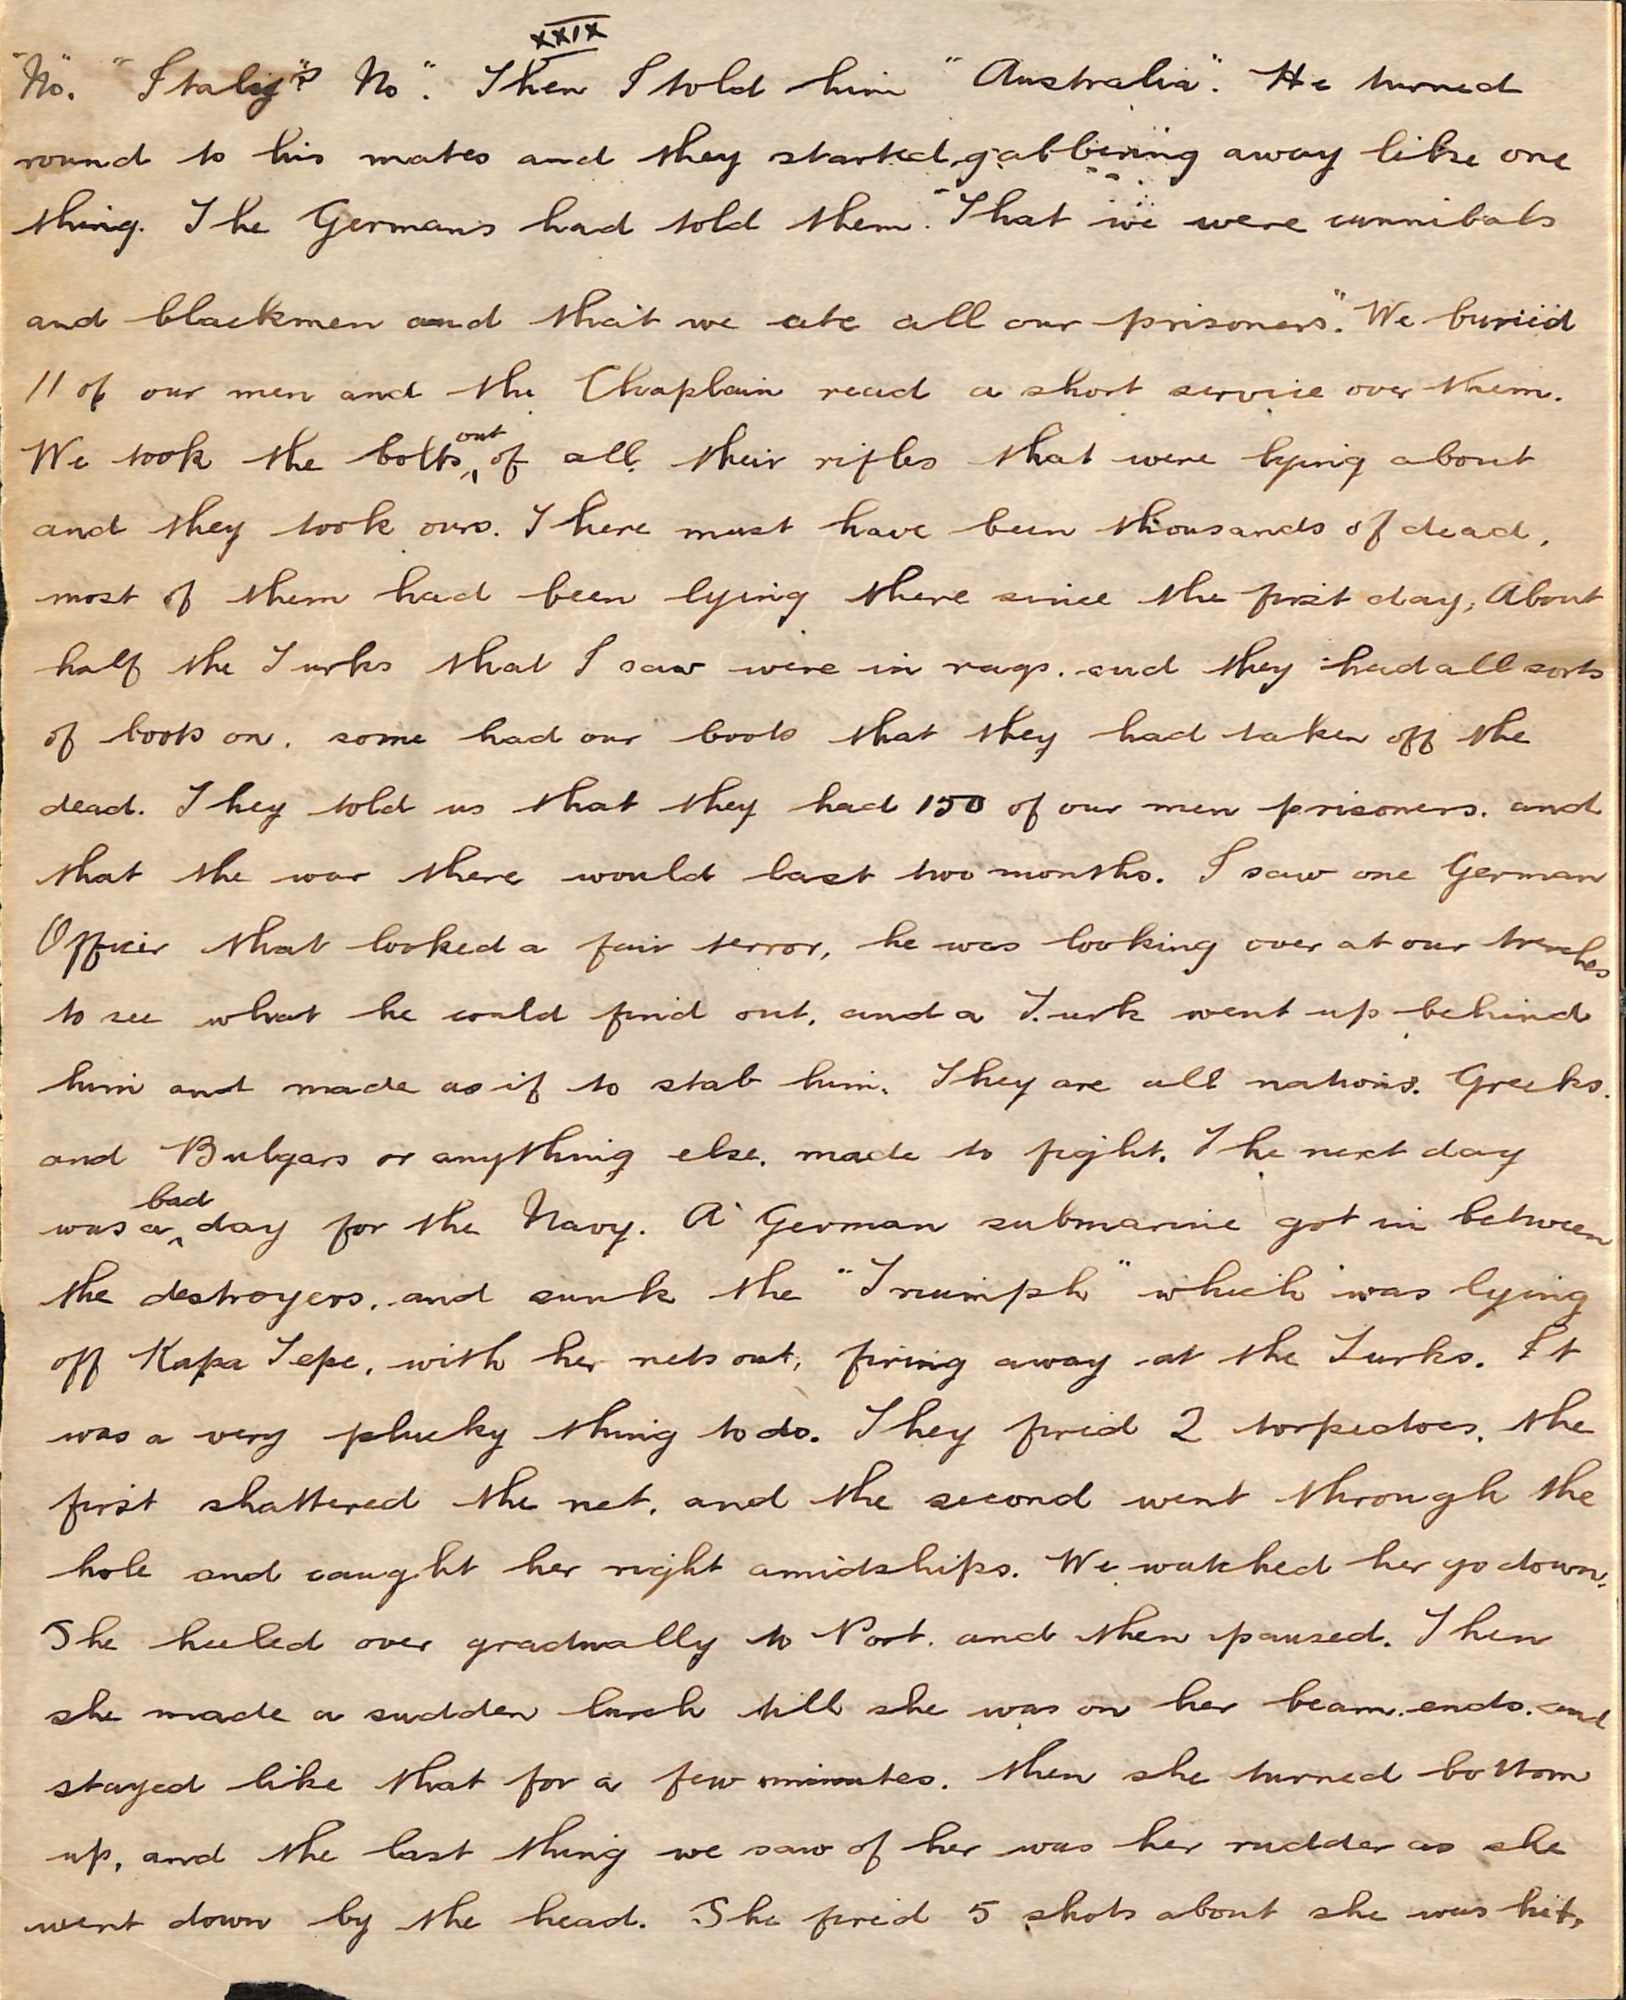 XXIX
"No". "Italy"? No". Then I told him "Australia". He turned
round to his mates and they started gabbering away like one
thing. The Germans had told them. "That we were cannibals
and blackmen and that we ate all our prisoners". We buried
11 of our men and the Chaplain read a short service over them.
We took the bolts out of all their rifles that were lying about
and they took ours. There must have been thousands of dead,
most of them had been lying there since the first day, About
half the Turks that I saw were in rags. and they had all sorts
of boots on. some had our boots that they had taken off the
dead. They told us that they had 150 of our men prisoners. and
that the war there would last two months. I saw one German
Officer that looked a fair terror, he was looking over at our trenches
to see what he could find out, and a Turk went up behind
him and made as if to stab him. They are all nations. Greeks.
and Bulgars or anything else. made to fight. The next day
was a bad day for the Navy. A German submarine got in between
the destroyers, and sunk the "Triumph" which was lying
off Kapa Tepe, with her nets out, firing away at the Turks. It
was a very plucky thing to do. They fired 2 torpedoes, the
first shattered the net, and the second went through the
hole and caught her right amidships. We watched her go down.
She heeled over gradually to Port. and then paused. Then
she made a sudden lurch till she was on her beam. ends. and
stayed like that for a few minutes. then she turned bottom
up, and the last thing we saw of her was her rudder as she
went down by the head. She fired 5 shots about she was hit,